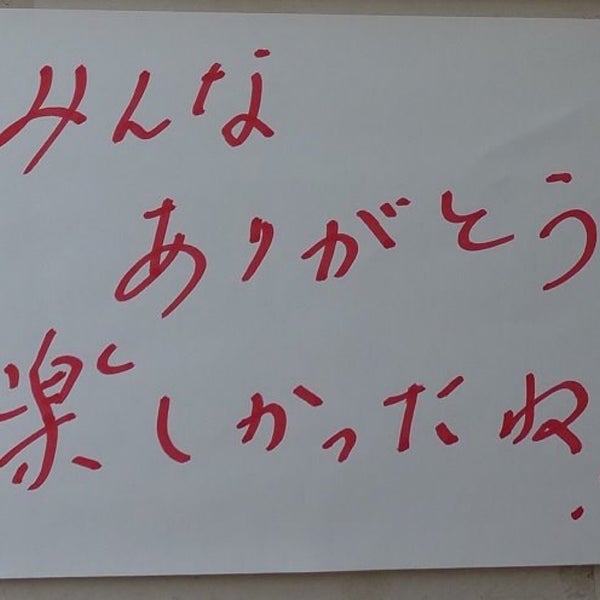 みんな
ありがとう
楽しかったね.